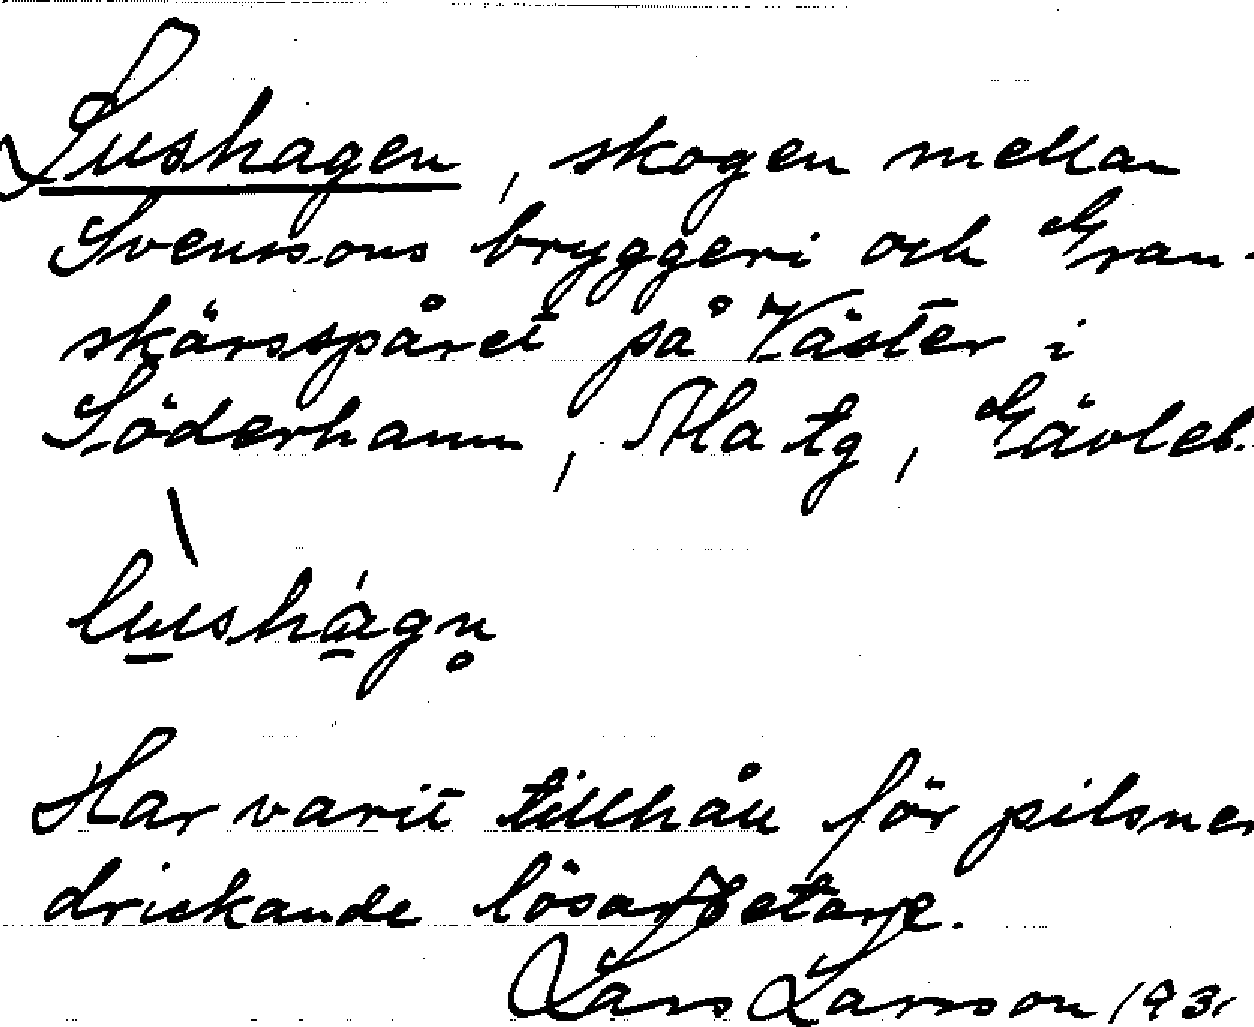 Lushagen, skogen mellan
Svenssons bryggeri och Gran-
skärsspåret på Väster i
Söderhamn, Ala tg, Gävleb.
lushágn̥
Har varit tillhåll för pilsner
drickande lösarbetare.
Lars Larsson 1931